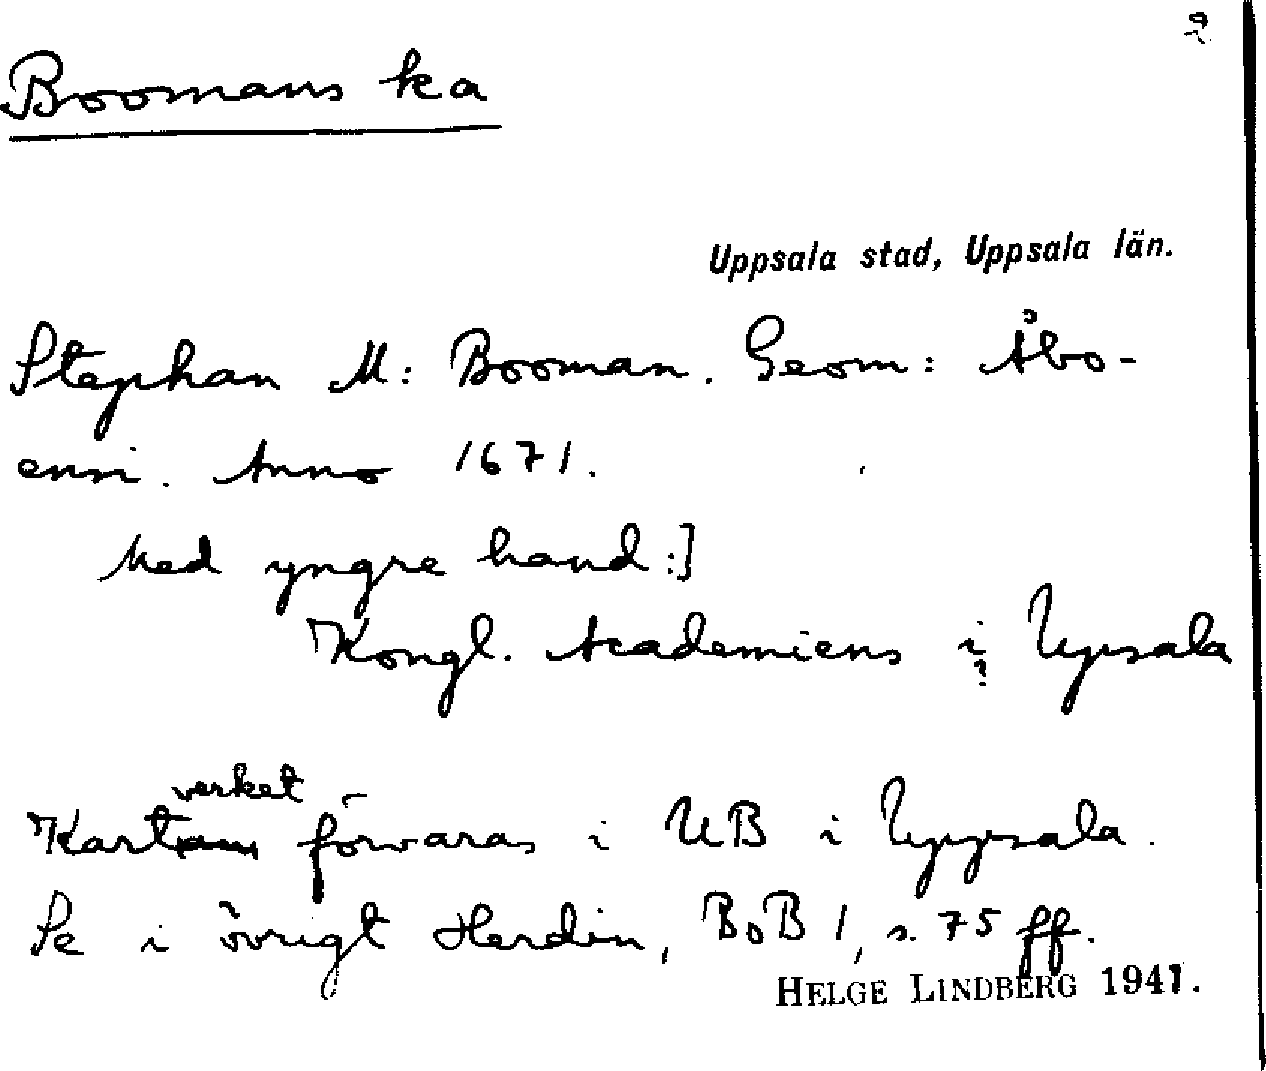 2
Boomans ka
Uppsala stad, Uppsala län.
Stephan M: Booman. Geom: Åbo-
ensi. Anno 1671.
Med yngre hand:]
Kongl. Academiens i Upsala
?
verket
Kartan förvaras i UB i Uppsala.
Se i övrigt Herdin, BoB 1, s. 75 ff.
HELGE LINDBERG 1941.